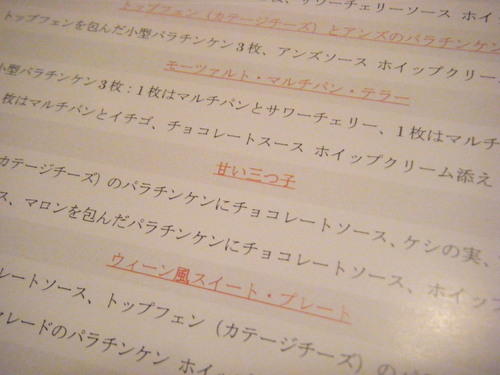 サワーチェリーソース ホイ
トップフェン（カテージチーズ）とアンズのパラチンケン
トップフェンを包んだ小型パラチンケン3枚、アンズソース ホイップクリー
モーツァルト・マルチパン・テラー
小型パラチンケン3枚：1枚はマルチパンとサワーチェリー、1枚はマルチ
枚はマルチパンとイチゴ、チョコレートスース ホイップクリーム添え
甘い三つ子
カテージチーズ）のパラチンケンにチョコレートソース、ケシの実、
ス、マロンを包んだパラチンケンにチョコレートソース、ホイップ
ウィーン風スイート・プレート
レートソース、トップフェン（カテージチーズ）のパ
レードのパラチンケン ホイ